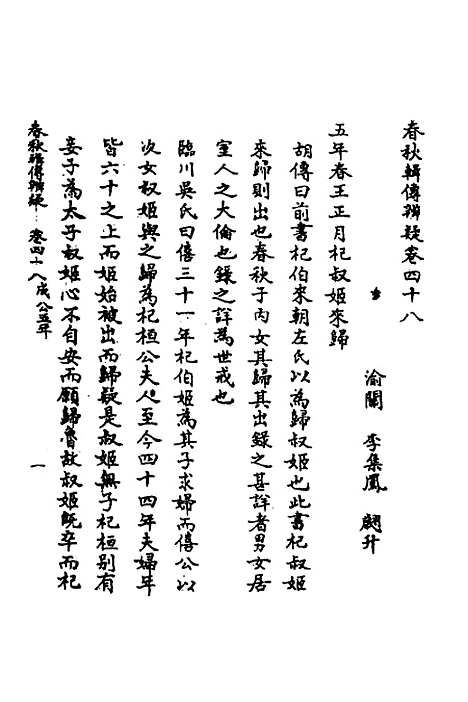 春秋輯傳辨疑卷四十八
渝關 李集鳳 翽升
五年春王正月杞叔姬來歸
胡傳曰前書杞伯來朝左氏以為歸叔姬也此書杞叔姬
來歸則出也春秋于內女其歸其出錄之甚詳者男女居
室人之大倫也錄之詳為世戒也
臨川吳氏曰僖三十一年杞伯姬為其子求婦而僖公以
次女叔姬與之歸為杞桓公夫人至今四十四年夫婦年
皆六十之上而姬始被出而歸疑是叔姬無子杞桓別有
妾子為太子叔姬心不自安而願歸魯故叔姬既卒而杞
春秋輯傳辨疑 卷四十八 成公五年 一